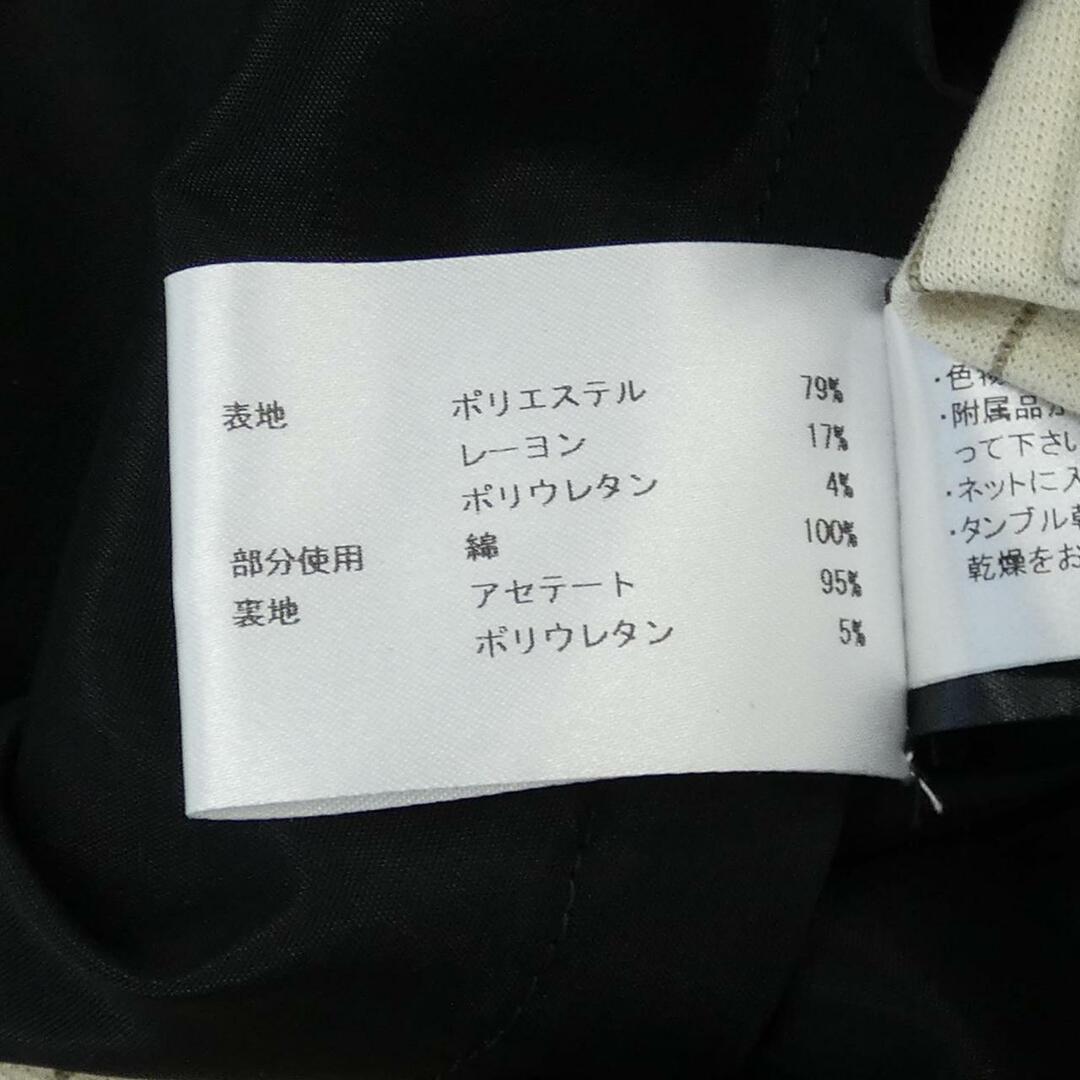 表地 ポリエステル 79%
レーヨン 17%
ポリウレタン 4%
部分使用 綿 100%
裏地 アセテート 95%
ポリウレタン 5%
・色物
・附属品が
って下さい
・ネットに入
・タンブル乾
乾燥をお